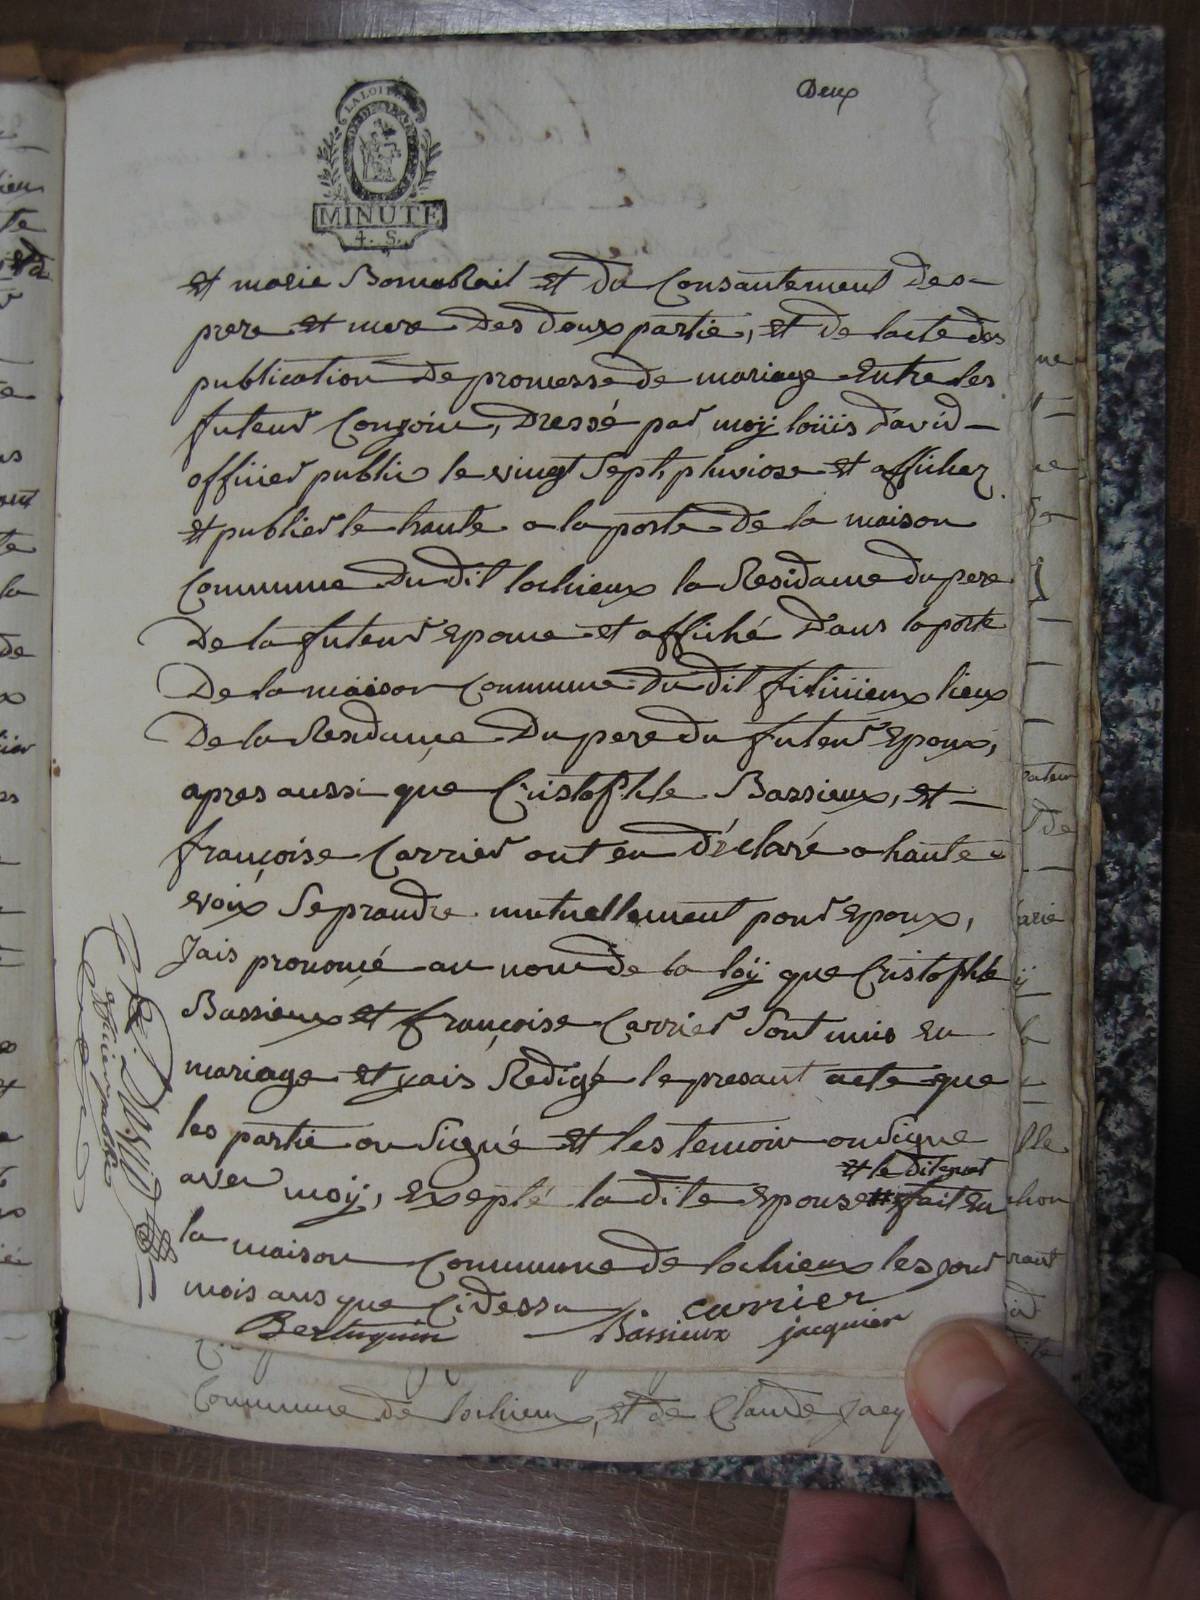 Deux
LA LOI
MINUTE
4. S.
et marie et du Consantement Des
pere et mere Des deux partie, et de lacte des
publication De promesse de mariage Entre les
futeur Conjoin, Dressé par moÿ loüis david
officier public le vingt Sept pluviose et afficher
et publier le haute a la porte De la maison
Commune Du dit lochieux la Residance du pere
De la futeur epouse et affiché Dans la porte
De la maison Commune Du dit lieux
De la Resdançe Du pere du futeur Epoux,
apres aussi que Cristophle Bassieux, et
françoise Carrier ont eu déclaré a haute
voix Se prandre mutuellement pour epoux,
Jais prononcé au nom de la loÿ que Cristophle
Bassieux et françoise Carrier Sont unis En
mariage et jais Redigé le presant acte que
les partie on Signé et les temoin on Signe
avec moÿ, Exepté la dite epouse fait en
et le dit
la maison Commune de lochieux les jour
mois ans que Cidessu
carrier
Bassieux jacquier
Commune de lochieux, et de Claude Jacq